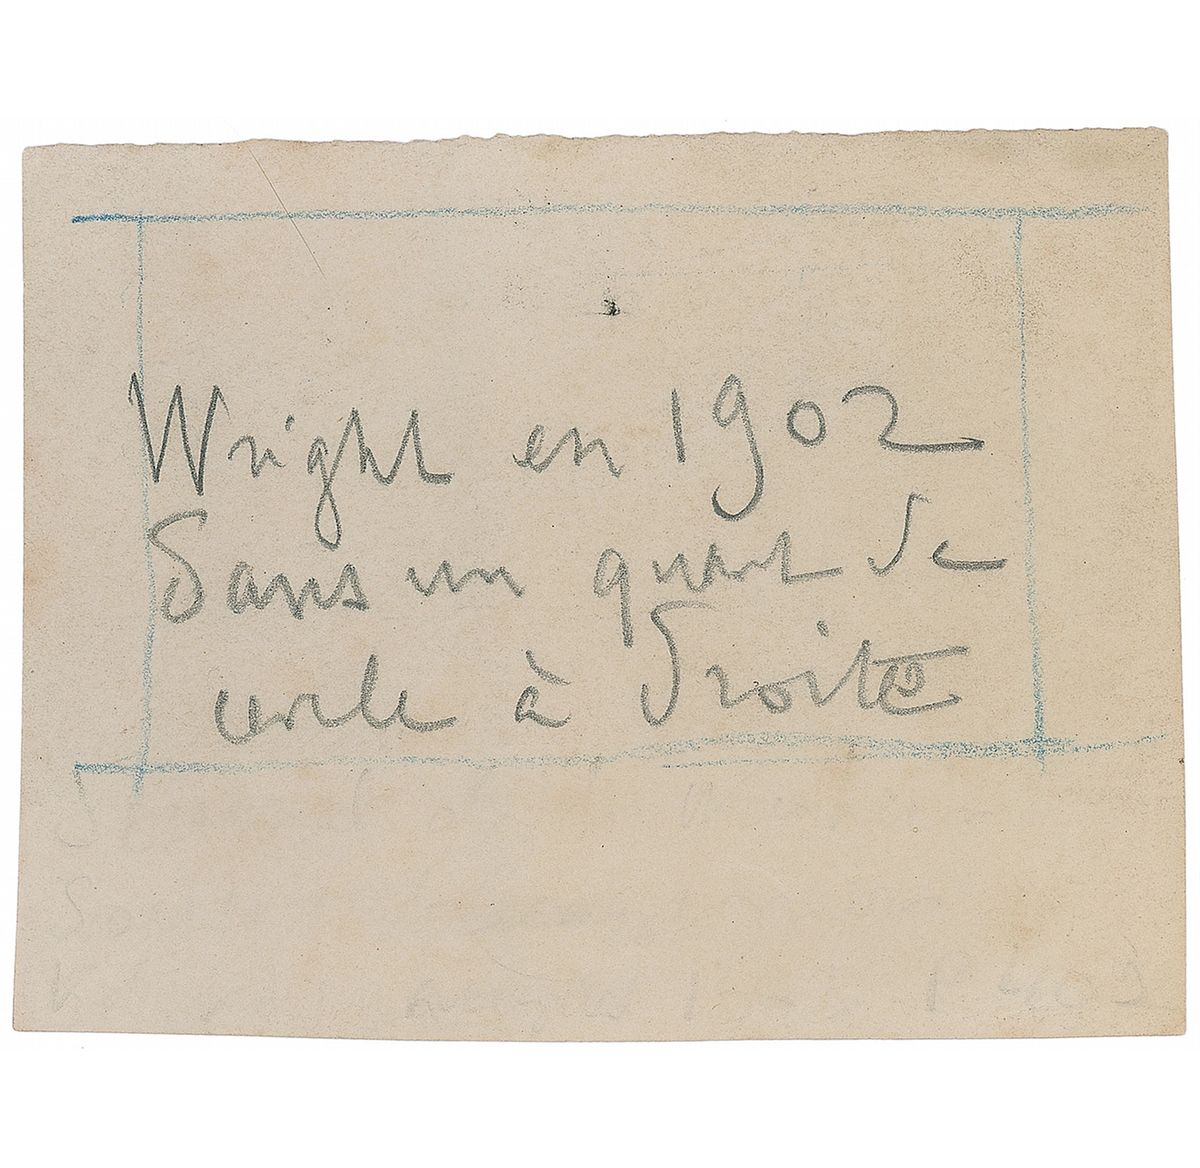 Wright en 1902
dans un quart de
cercle à droite